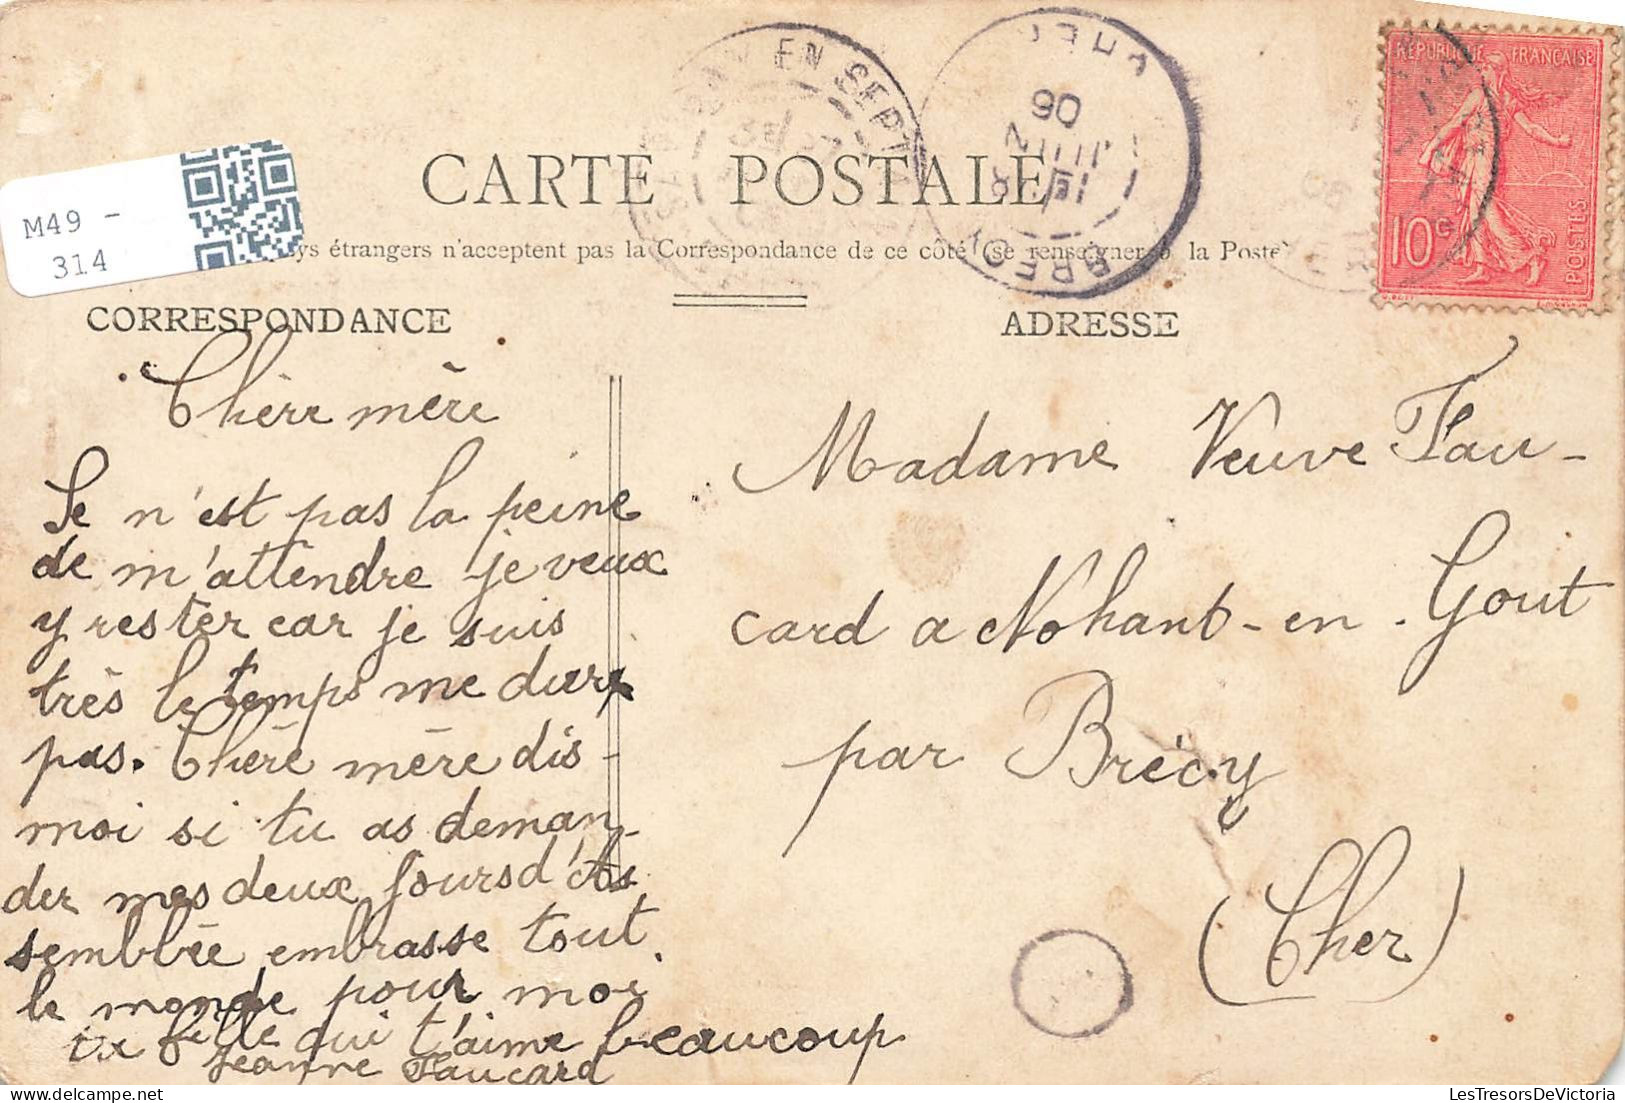 M49 -
314
EN SEPT
CHER
06
BRECY
REPUBLIQUE FRANCAISE
10c
POSTES
CARTE POSTALE
ys étrangers n'acceptent pas la Correspondance de ce côté (se renseigner à la Poste)
CORRESPONDANCE
ADRESSE
Chère mère
Se n'est pas la peine
de m'attendre je veux
y rester car je suis
très le temps me dure
pas. Chère mère dis-
moi si tu as deman-
der mes deux jours d'As
semblée embrasse tout
le monde pour moi
ta fille qui t'aime beaucoup
Jeanne Faucard
Madame Veuve Fau-
card a Nohant-en-Gout
par Brécy
(Cher)
LesTresorsDeVictoria